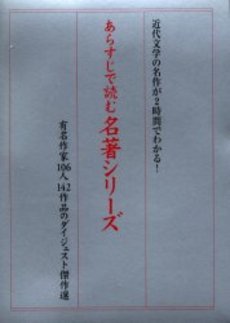 近代文学の名作が2時間でわかる!
あらすじで読む名著シリーズ
有名作家106人142作品のダイジェスト傑作選